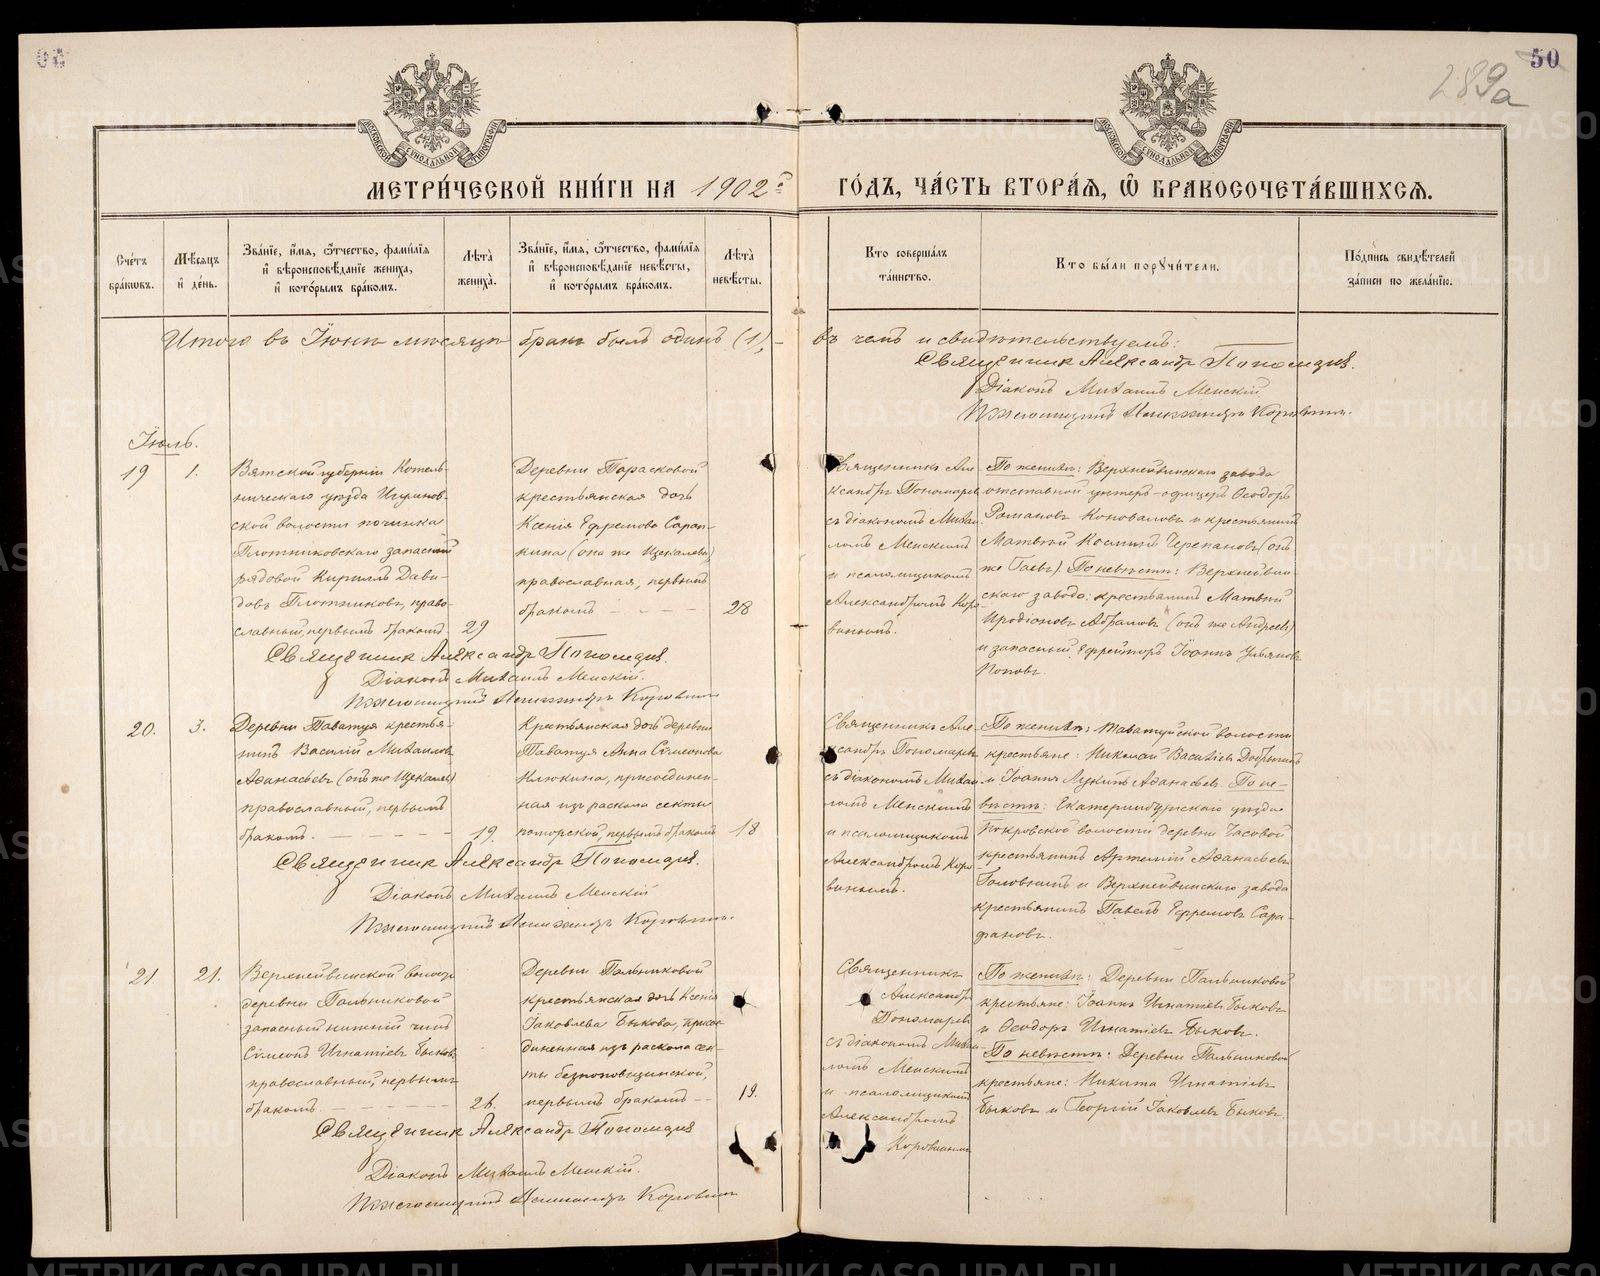 50
289а
МЕТРИ́ЧЕСКОЙ КНИ́ГИ НА 1902 г
ГО́ДЪ, ЧА́СТЬ ВТОРА́Я, Ѿ БРАКОСОЧЕТА́ВШИХСѦ.
Сче́тъ бра́кѡвъ.
Мѣ́сѧцъ и҆ де́нь.
Зва́нїе, и҆́мѧ, ѻ҆́тчество, фами́лїѧ
и҆ вѣроисповѣ́данїе жениха̀,
и҆ кото́рымъ бра́комъ.
Лѣ́та жениха̀.
Зва́нїе, и҆́мѧ, ѻ҆́тчество, фами́лїѧ
и҆ вѣроисповѣ́данїе невѣ́сты,
и҆ кото́рымъ бра́комъ.
Лѣ́та невѣ́сты.
Кто̀ соверша́лъ
та́инство.
Кто̀ бы́ли порꙋчи́тели.
По́дпись свидѣ́телей
за́писи по жела́нїю.
Итого въ Іюнѣ мѣсяцѣ бракъ былъ одинъ (1), -
въ чемъ и свидѣтельствуемъ:
Священникъ Александръ Пономаревъ.
Діаконъ Михаилъ Менскій
Псаломщикъ Александръ Коровинъ.
Іюль.
19
1.
Вятской губерніи Котель-
ническаго уѣзда
ской волости починка
Плотниковскаго запасный
рядовой Кириллъ Дави-
довъ Плотниковъ, право-
славный, первымъ бракомъ.
29
Деревни Тарасковой
крестьянская дочь
Ксенія Ефремова Сарап-
кина (она же Щекалева)
православная, первымъ
бракомъ - - - -
28
Священникъ Але-
ксандръ Пономаревъ
съ діакономъ Миха-
ломъ Менскимъ
и псаломщикомъ
Александромъ Коро-
винымъ.
По женихѣ: Верхнейвинскаго завода
отставной унтеръ-офицеръ Ѳеодоръ
Романовъ Коноваловъ и крестьянинъ
Матвѣй Косминъ Черепановъ (онъ
же Гаевъ). По невѣстѣ: Верхнейвин-
скаго завода: крестьянинъ Матвѣй
Иродіоновъ Абрамовъ (онъ же Андреевъ)
и запасный Ефрейторъ Іоаннъ
Поповъ.
Священникъ Александръ Пономаревъ.
Діаконъ Михаилъ Менскій.
Псаломщикъ Александръ Коровинъ
20.
3.
Деревни Таватуя крестья-
нинъ Василій Михаиловъ
Аѳанасьевъ (онъ же Щекалевъ)
православный, первымъ
бракомъ. - - - - -
19.
Крестьянская дочь деревни
Таватуя Анна Сѵмеонова
Клюкина, присоединен-
ная изъ раскола секты
поморской, первымъ бракомъ
18
Священникъ Але-
ксандръ Пономаревъ
съ діакономъ Михаи-
ломъ Менскимъ
и псаломщикомъ
Александромъ Коро-
винымъ.
По женихѣ: Таватуйской волости
крестьяне: Николай Васильевъ Добрынинъ
и Іоаннъ Лукинъ Аѳанасьевъ. По не-
вѣстѣ: Екатеринбургскаго уѣзда
Покровской волости деревни Часовой
крестьянинъ Артемій Аѳанасьевъ
Головнинъ и Верхнейвинскаго завода
крестьянинъ Павелъ Ефремовъ Сара-
фановъ.
Священникъ Александръ Пономаревъ.
Діаконъ Михаилъ Менскій
Псаломщикъ Александръ Коровинъ.
21.
21.
Верхнейвинской волости
деревни Пальниковой
запасный нижній чинъ
Сѵмеонъ Игнатіевъ Быковъ,
православный, первымъ
бракомъ. - - - - -
26.
Деревни Пальниковой
крестьянская дочь Ксенія
Іаковлева Быкова, присое-
диненная изъ раскола сек-
ты безпоповщинской,
первымъ бракомъ - -
19.
Священникъ
Александръ
Пономаревъ
съ діакономъ Михаи-
ломъ Менскимъ
и псаломщикомъ
Александромъ
Коровинымъ
По женихѣ: Деревни Пальниковой
крестьяне: Іоаннъ Игнатіевъ Быковъ
и Ѳеодоръ Игнатіевъ Быковъ.
По невѣстѣ: Деревни Пальниковой
крестьяне: Никита Игнатіевъ
Быковъ и Георгій Іаковлевъ Быковъ.
Священникъ Александръ Пономаревъ
Діаконъ Михаилъ Менскій.
Псаломщикъ Александръ Коровинъ
METRIKI.GASO-URAL.RU